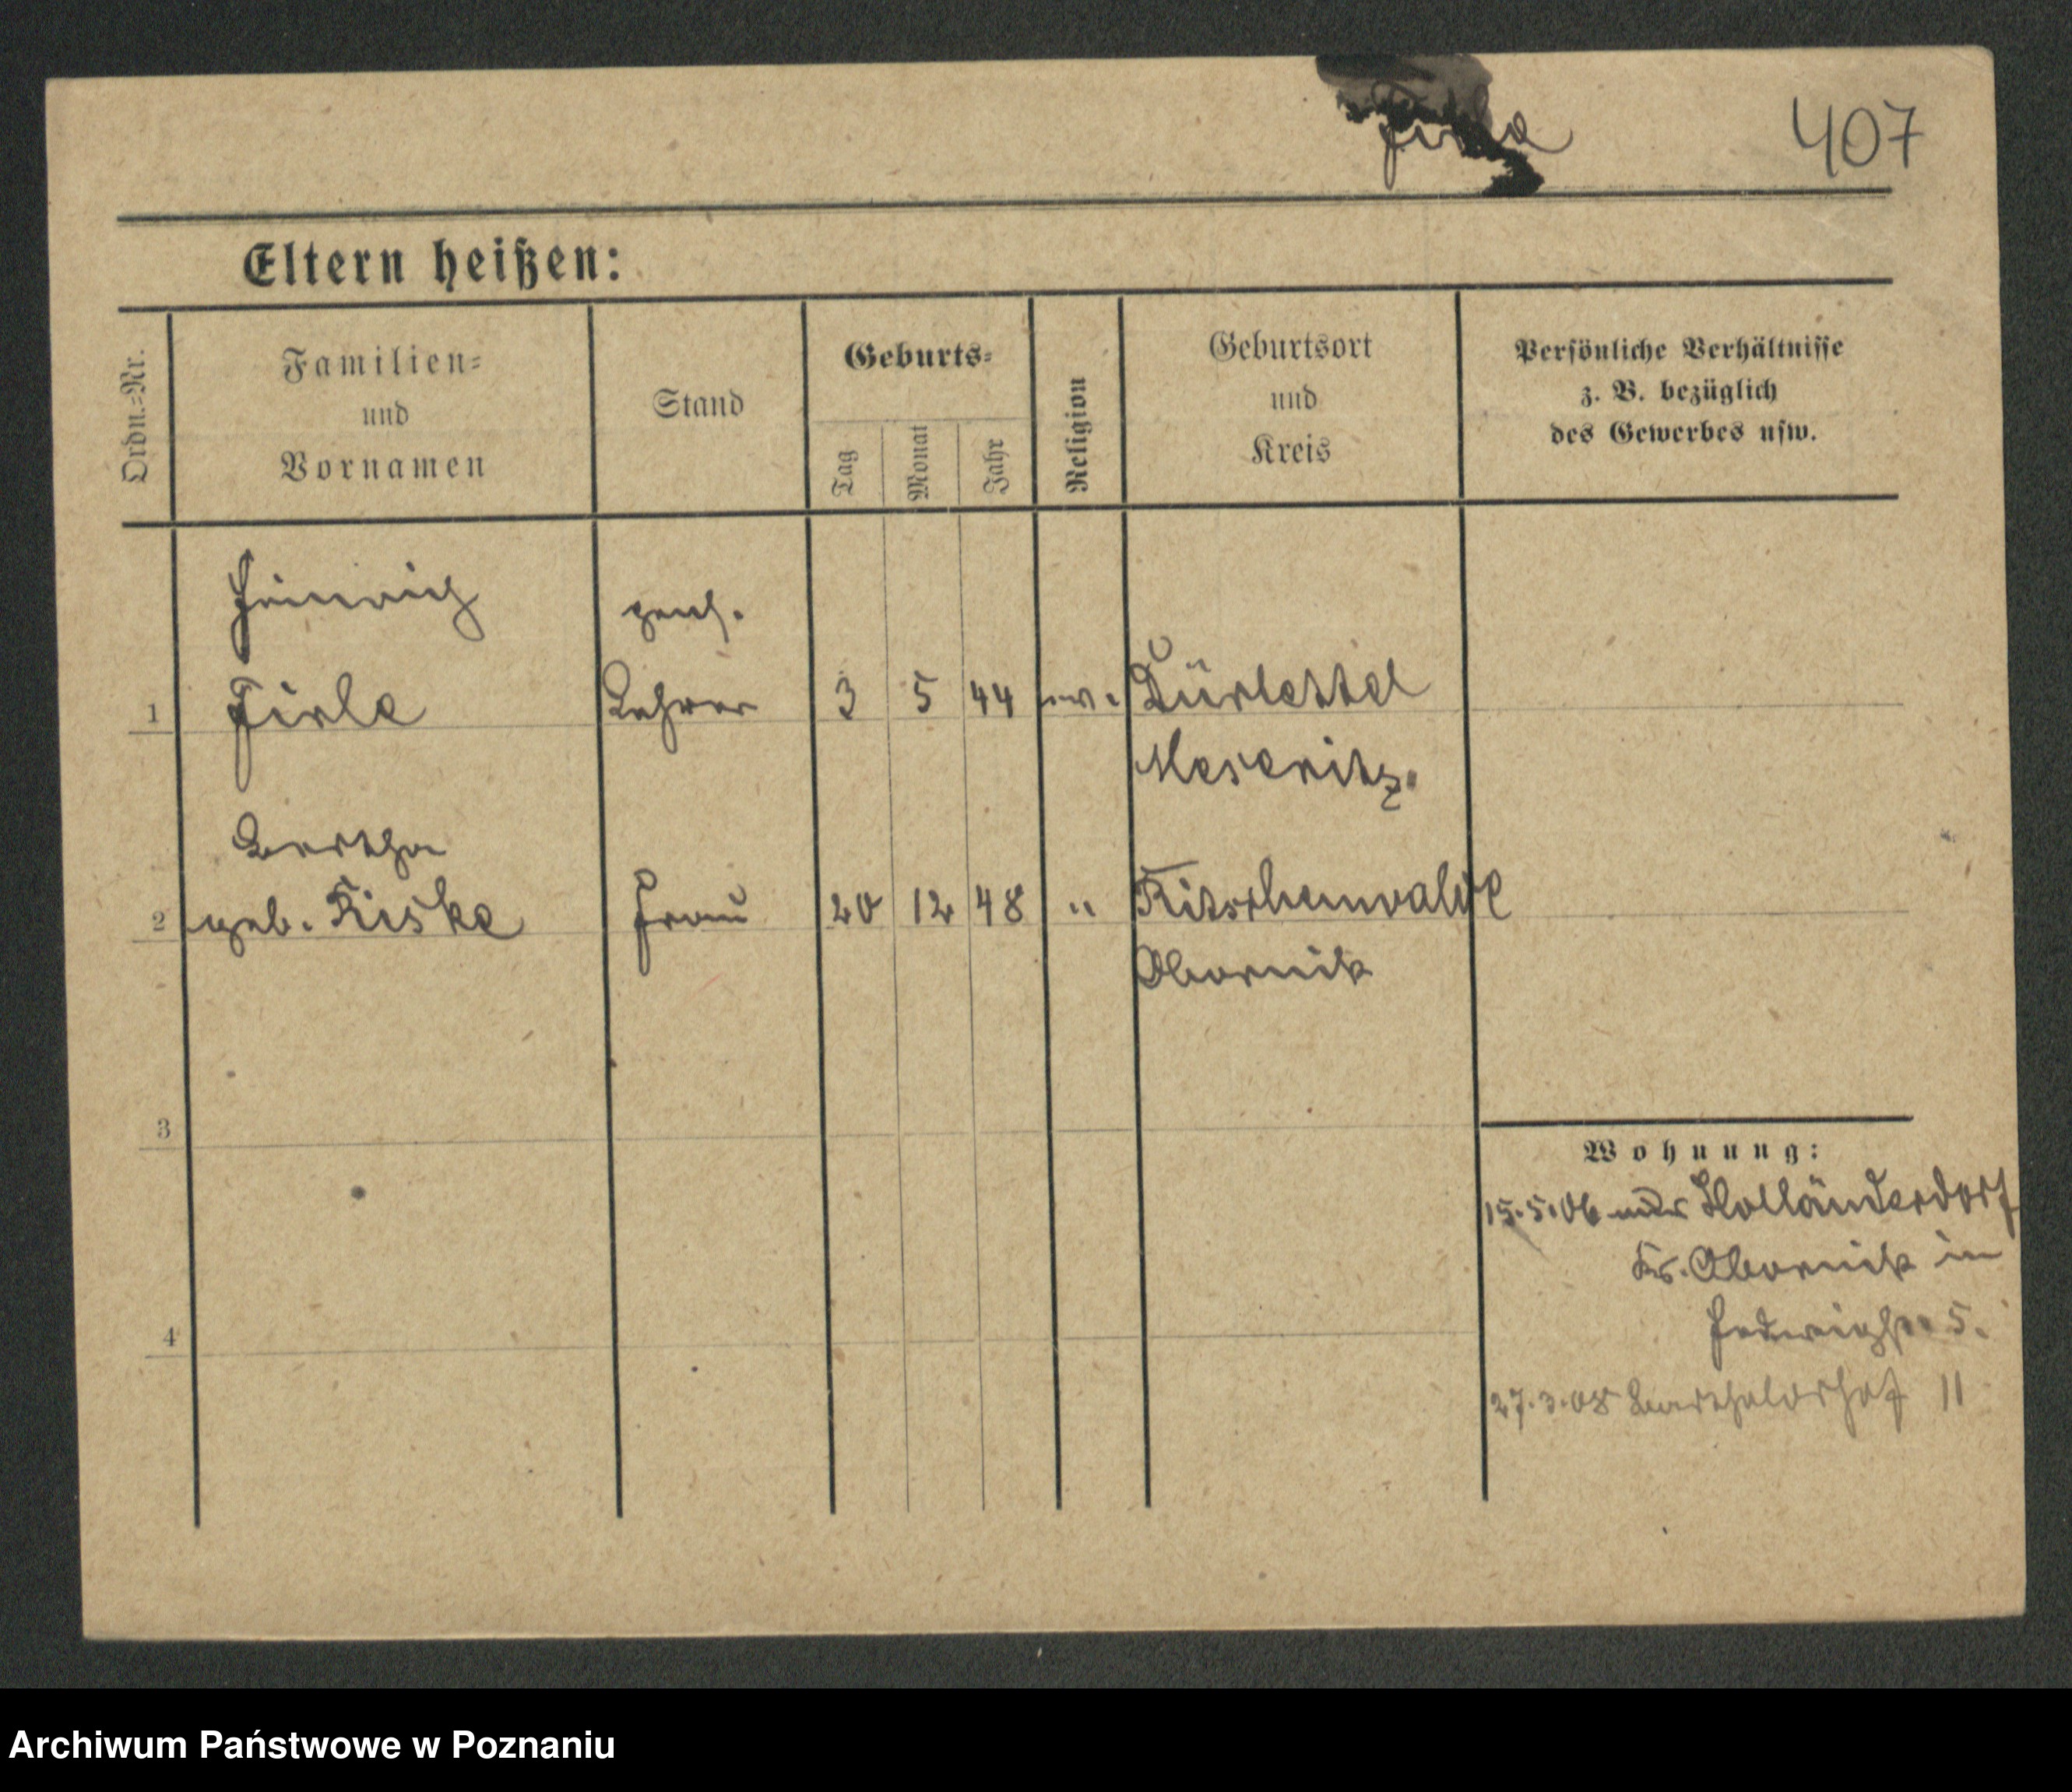 407
Eltern heißen:
Ordn.-Nr.
Familien-
und
Vornamen
Stand
Geburts-
Tag
Monat
Jahr
Religion
Geburtsort
und
Kreis
Persönliche Verhältnisse
z. B. bezüglich
des Gewerbes usw.
Heinrich pens.
1 Firle Lehrer 3 5 44 ev. Dürlettel
Meseritz.
Bertha
2 geb. Kiske Frau 20 12 48 " Ritschenwalde
Obornik
3
Wohnung:
15.5.06 aus Holländerdorf
Kr. Obornik in
Hedwigstr. 5.
4
27.3.08 Bartholdshof 11
Archiwum Państwowe w Poznaniu